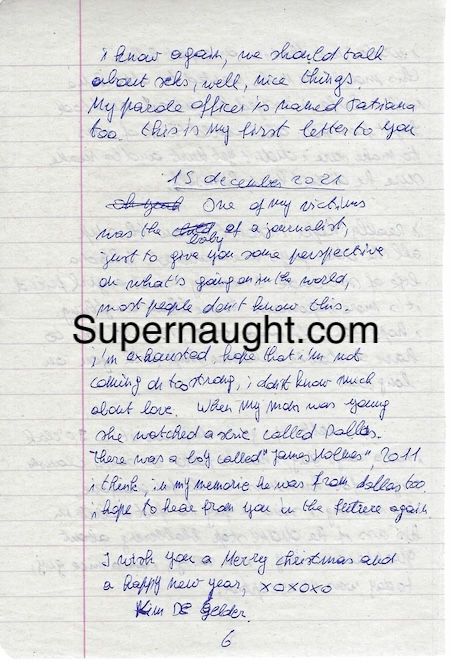 i know again, we should talk
about seks, well, nice things.
My parole officer is named Tatiana
too. this is my first letter to you
15 december 2021
oh yeah One of my victims
was the baby of a journalist,
just to give you some perspective
on what's going on in the world,
most people don't know this.
Supernaught.com
i'm exhausted, hope that i'm not
coming on to strong, i don't know much
about love. When my mom was young
she watched a serie called Dallas.
There was a boy called "James Holmes", 2011
i think, in my memorie he was from dallas too.
i hope to hear from you in the future again
I wish you a Merry christmas and
a happy new year, xoxoxo
Kim De Gelder.
6